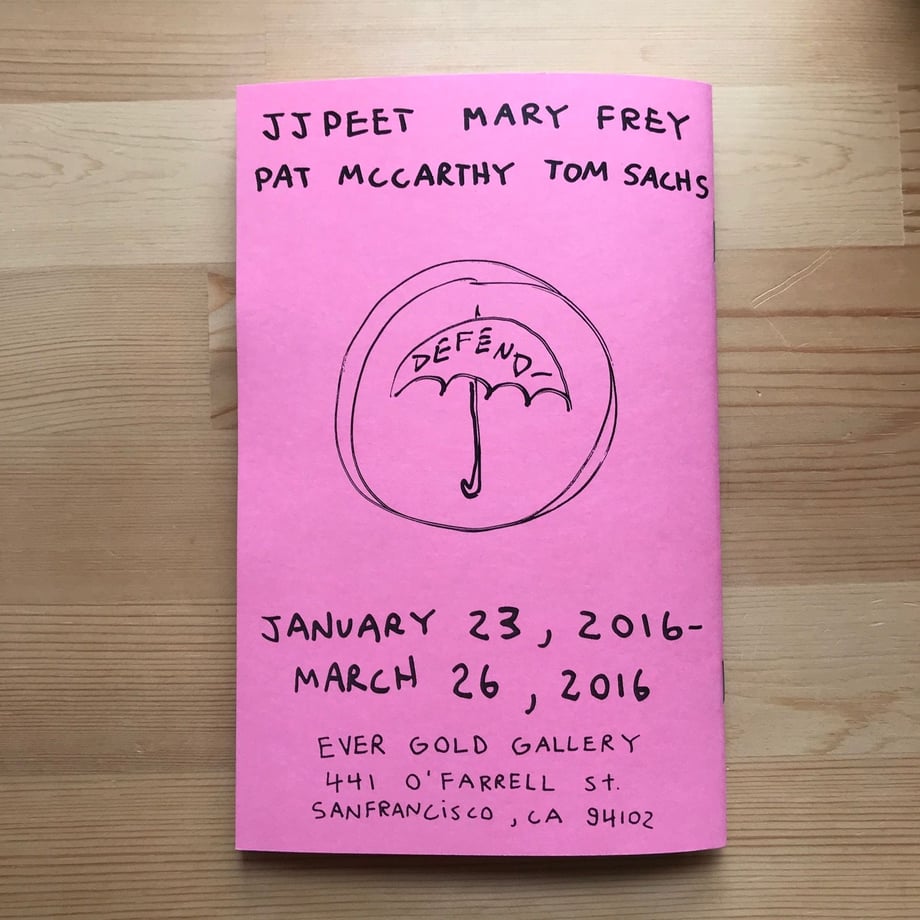 JJ PEET MARY FREY
PAT MCCARTHY TOM SACHS
DEFEND-
JANUARY 23, 2016-
MARCH 26, 2016
EVER GOLD GALLERY
441 O'FARRELL St.
SANFRANCiSCO, CA 94102